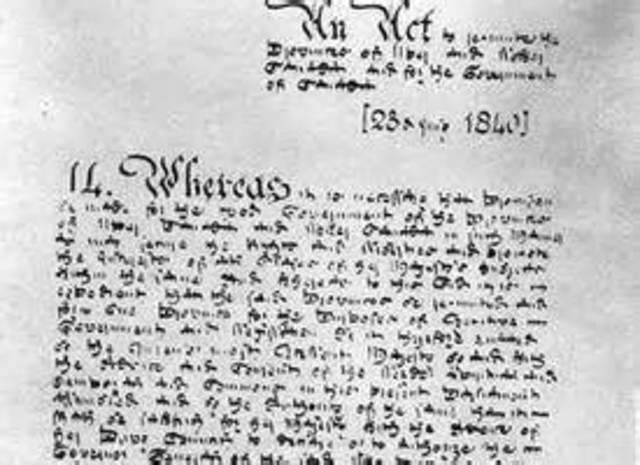 An Act to re-unite the
Provinces of Upper and Lower
Canada and for the Government
of Canada
[23 July 1840]
14. Whereas it is necessary that Provision
be made for the good Government of the Provinces
of Upper Canada and Lower Canada in such Manner
as may secure the Rights and Liberties and promote
the Interests of all Classes of Her Majesty's Subjects
within the same And whereas to this End it is
expedient that the said Provinces be re-united and
form One Province for the Purposes of Executive
Government and Legislation Be it therefore enacted
by the Queen's most Excellent Majesty by and with
the Advice and Consent of the Lords Spiritual and
Temporal and Commons in this present Parliament
assembled and by the Authority of the same That it
shall be lawful for Her Majesty with the Advice of
Her Privy Council to declare or to authorize the
Governor General of the said